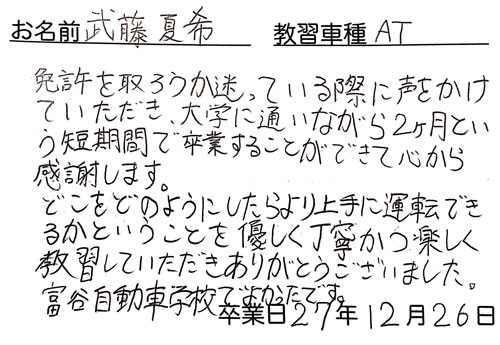 お名前 武藤夏希 教習車種 AT
免許を取ろうか迷っている際に声をかけ
ていただき、大学に通いながら2ヶ月とい
う短期間で卒業することができて心から
感謝します。
どこをどのようにしたらより上手に運転でき
るかということを優しく丁寧かつ楽しく
教習していただきありがとうございました。
富谷自動車学校でよかったです。
卒業日27年12月26日